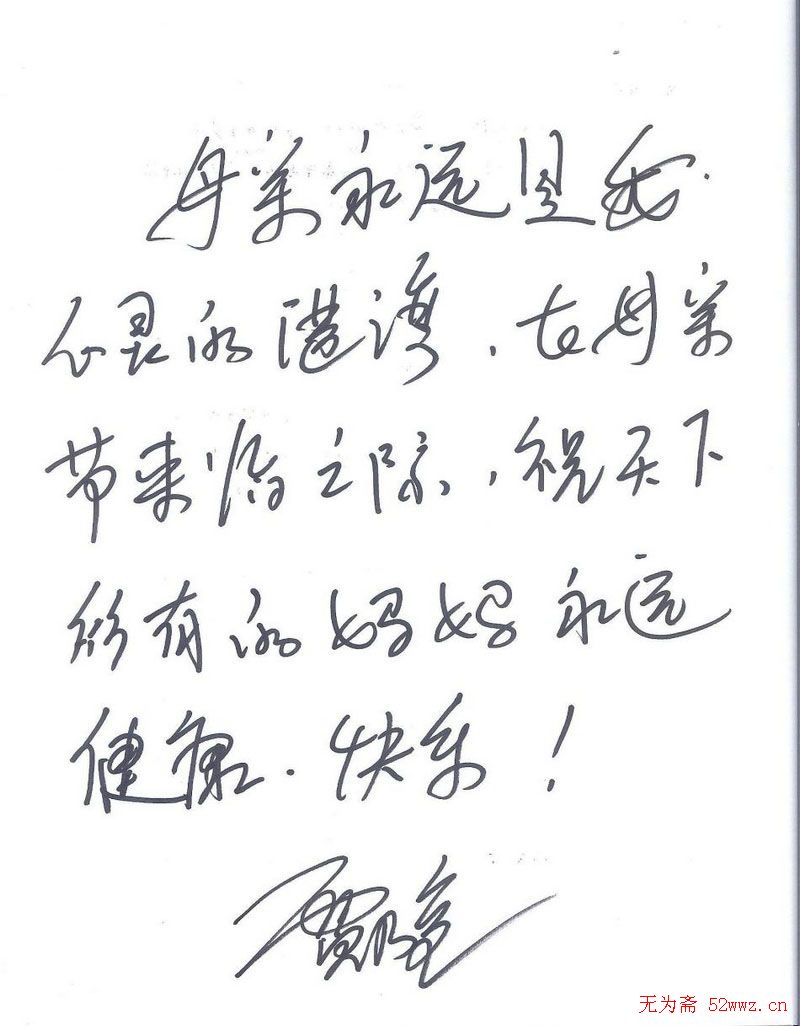 母亲永远是我
心灵的港湾,在母亲
节来临之际,祝天下
所有的妈妈永远
健康.快乐!
贾乃亮
无为斋 52wwz.cn